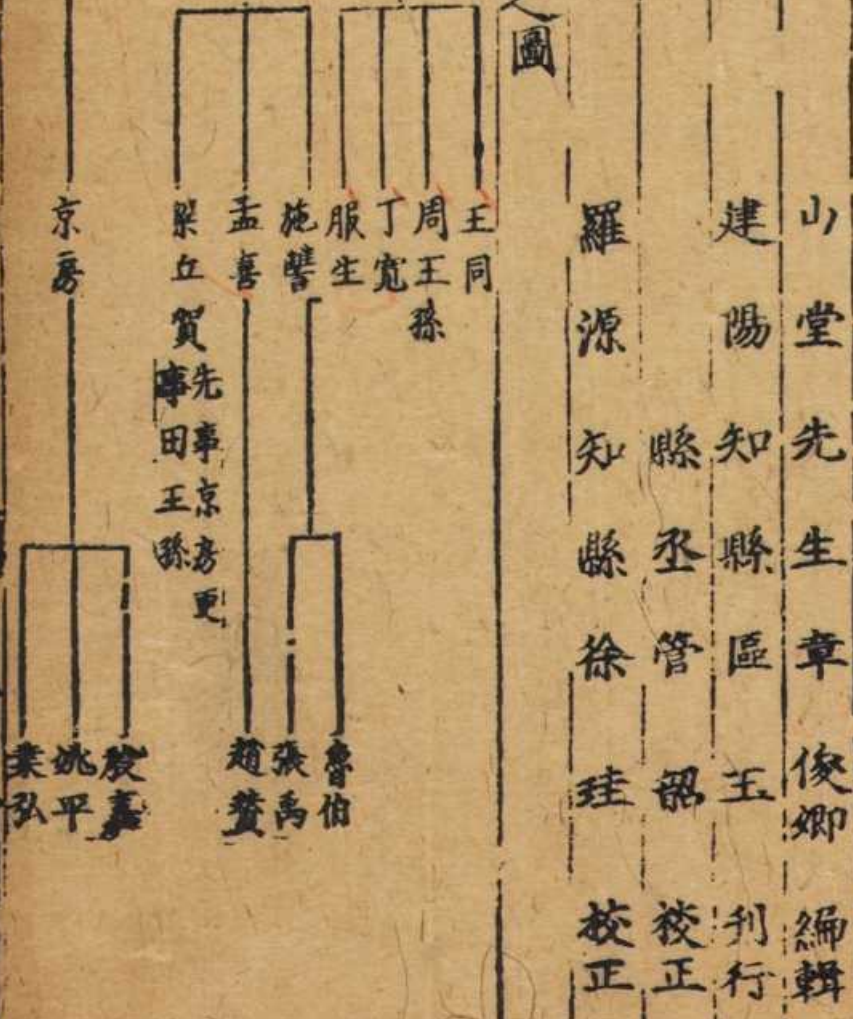 山堂先生章俊卿編輯
建陽知縣區玉刊行
縣丞管韶校正
羅源知縣徐珪校正
圖
王同
周王孫
丁寬
服生
施讐
孟喜
梁丘賀
先事京房更
事田王孫
京房
魯伯
張禹
趙賛
殷嘉
姚平
乗弘